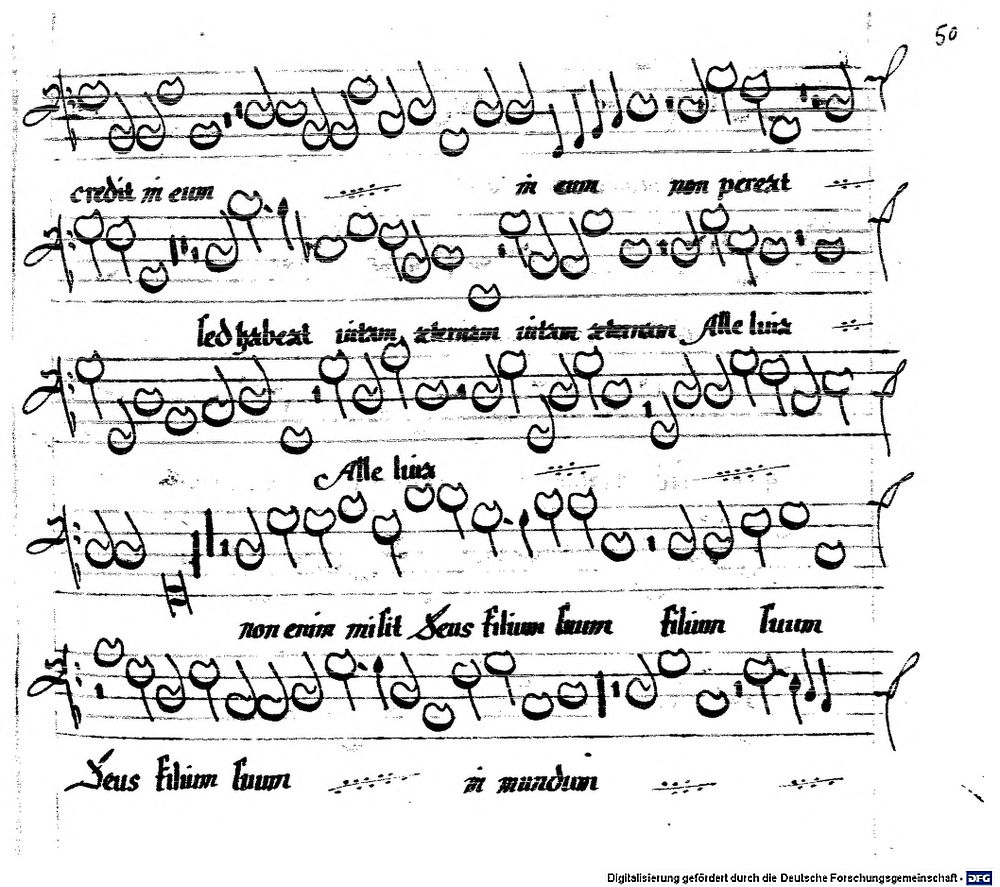 50
credit in eum in eum non pereat
sed habeat uitam æternam uitam æternam Alle luia
Alle luia
non enim misit Deus filium suum filium suum
Deus filium suum in mundum
Digitalisierung gefördert durch die Deutsche Forschungsgemeinschaft - DFG